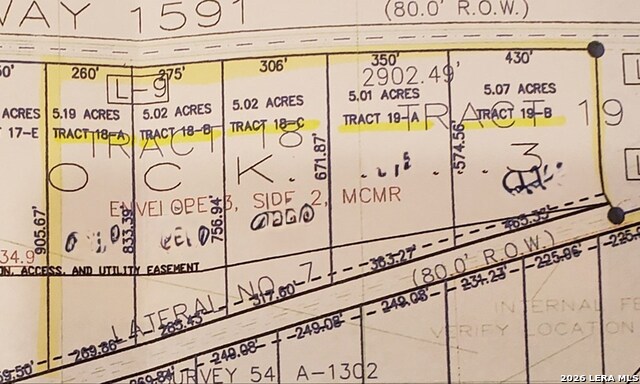 WAY 1591
(80.0' R.O.W.)
260'
275'
306'
350'
430'
L-9
2902.49'
5.19 ACRES
5.02 ACRES
5.02 ACRES
5.01 ACRES
5.07 ACRES
ACRES
TRACT 18-A
TRACT 18-B
TRACT 18-C
TRACT 19-A
TRACT 19-B
17-E
TRACT 18
TRACT 19
O C K
3
ENVELOPE 3, SIDE 2, MCMR
905.67'
833.39'
756.94'
671.87'
574.56'
34.9
ON, ACCESS, AND UTILITY EASEMENT
LATERAL NO. 7
(80.0' R.O.W.)
269.86'
283.43'
317.60'
363.27'
463.35'
249.08'
249.08'
249.08'
231.23'
225.96'
225.9
INTERNAL FE
VERIFY LOCATION
SURVEY 54 A-1302
2026 LERA MLS